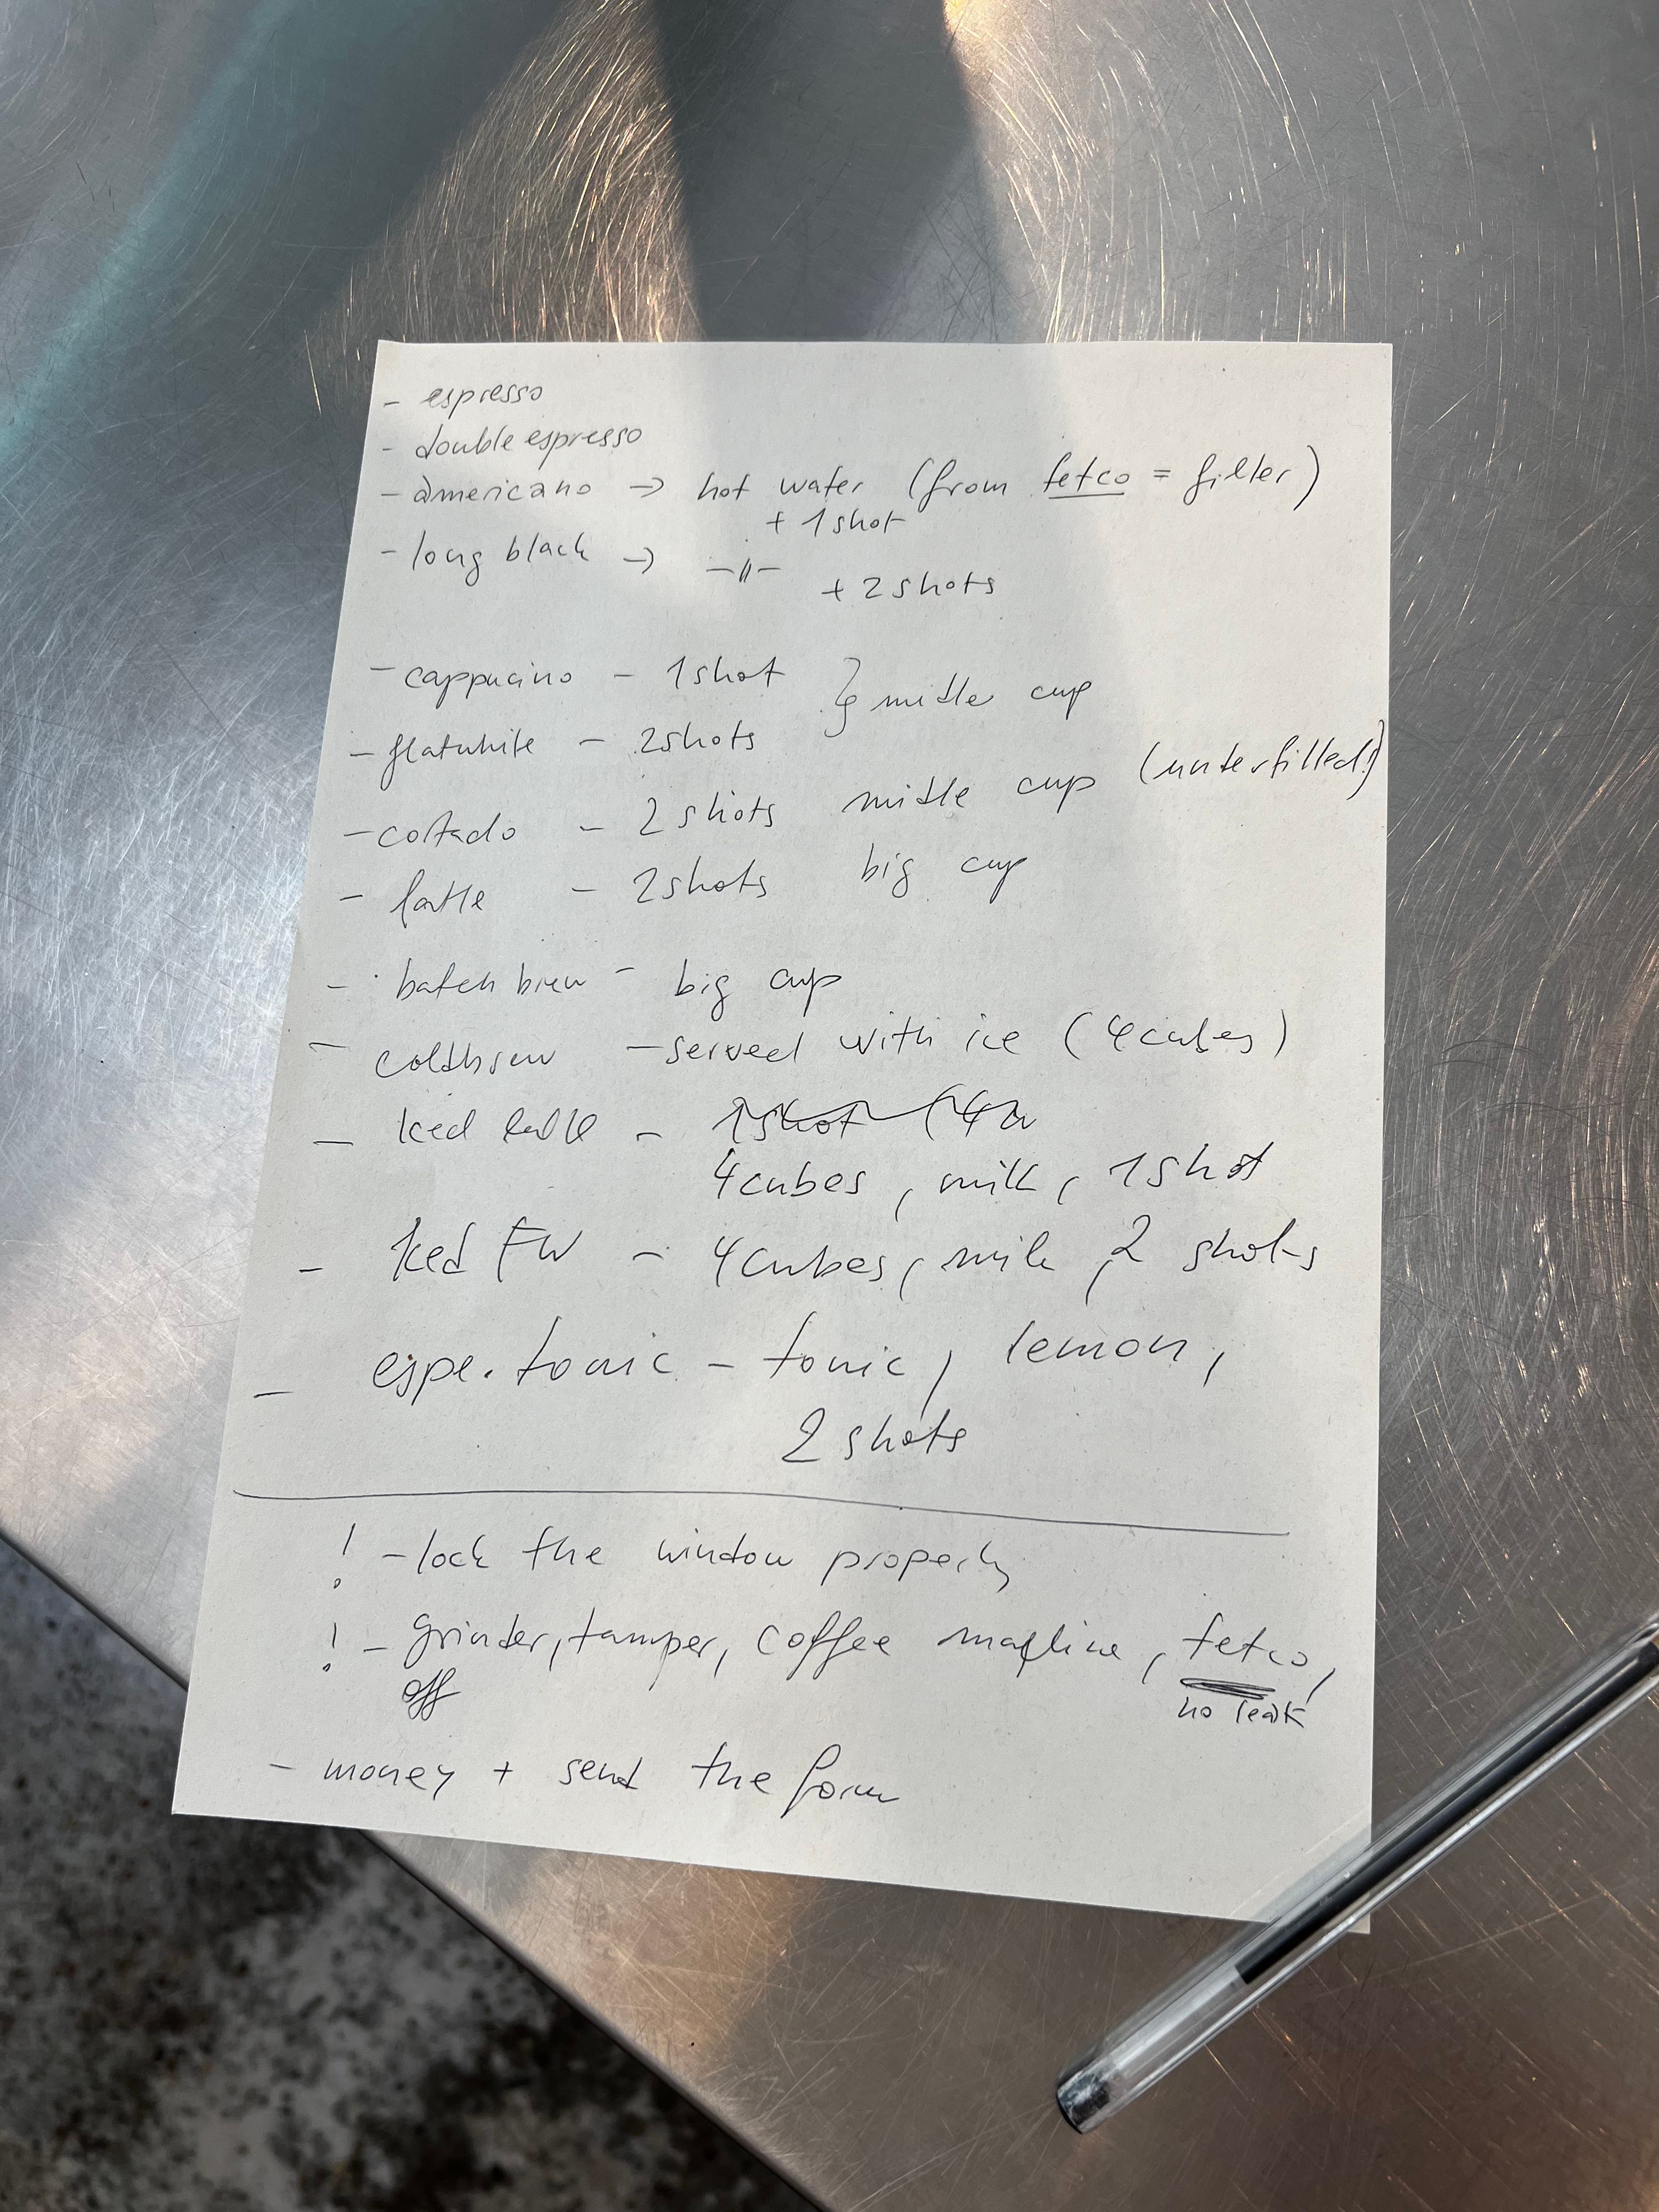 - espresso
- double espresso
- americano → hot water (from fetco = filter)
+ 1 shot
- long black → -||- + 2 shots
- cappucino - 1 shot } midle cup
- flatwhite - 2 shots
- cortado - 2 shots midle cup (underfilled!)
- latte - 2 shots big cup
- batch brew - big cup
- coldbrew - served with ice (4 cubes)
- Iced latte - 1 shot (4
4 cubes, milk, 1 shot
- Iced FW - 4 cubes, milk, 2 shots
- espe. tonic - tonic, lemon,
2 shots
! - lock the window properly
! - grinder, tamper, coffee machine, fetco,
off no leak
- money + send the form